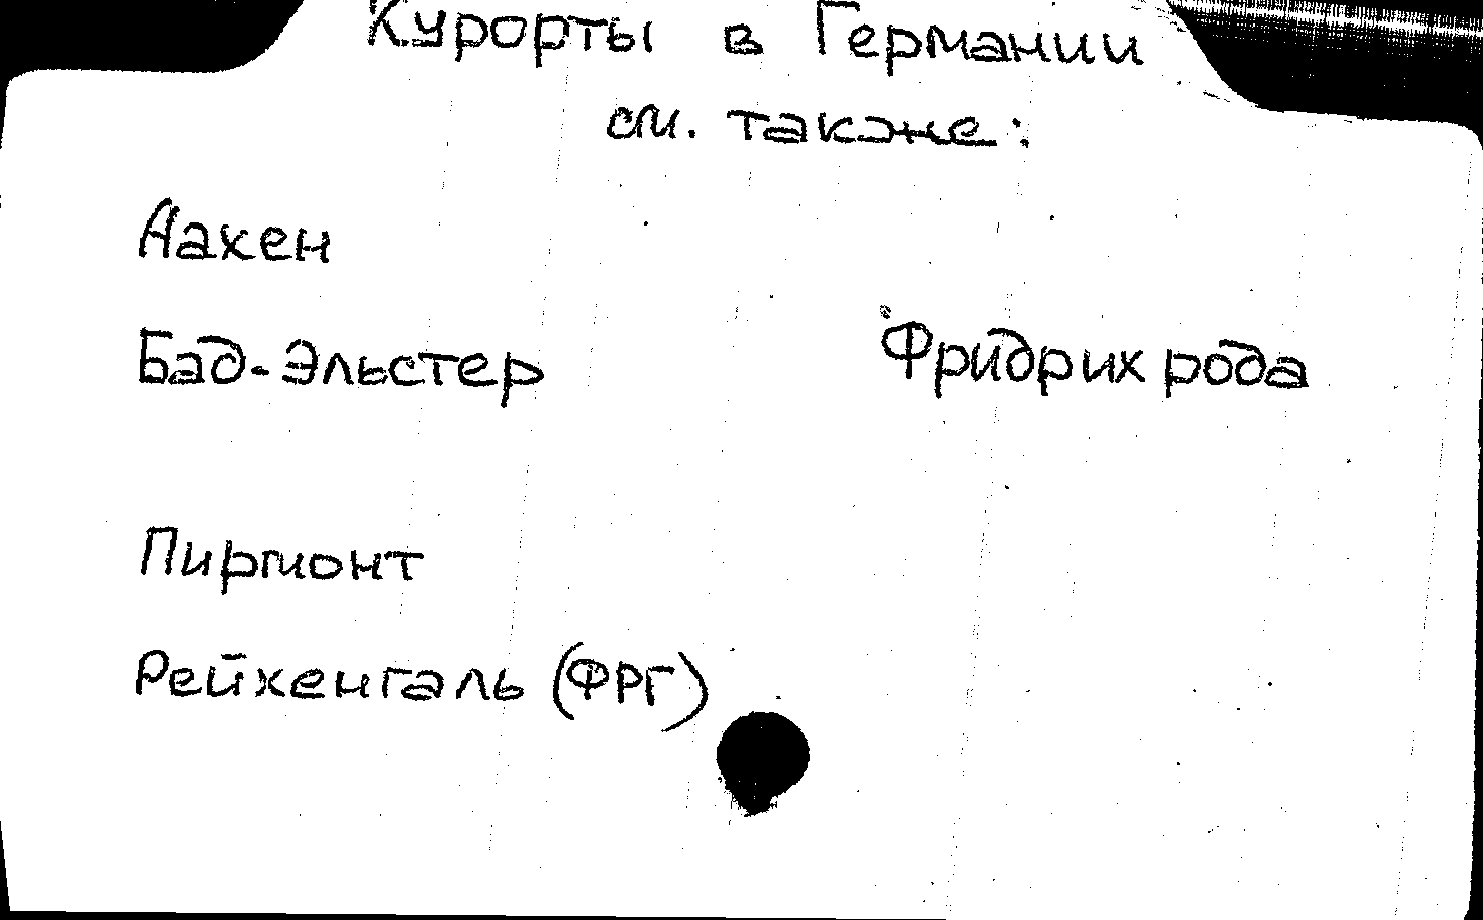 Курорты в Германии
см. также:
Аахен
Бад-Эльстер Фридрихрода
Пирмонт
Рейхенгаль (ФРГ)